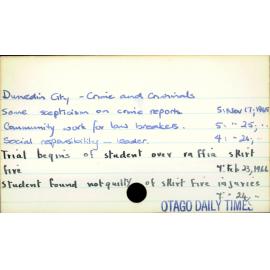 Dunedin City - Crime and Criminals
Some scepticism on crime reports. 5: Nov 17, 1965
Community work for law breakers. 5: " 25, "
Social responsibility - leader. 4: - 26, -
Trial begins of student over raffia skirt
fire 7: Feb 23, 1966
Student found not guilty of skirt fire injuries
7 - 24 -
OTAGO DAILY TIMES